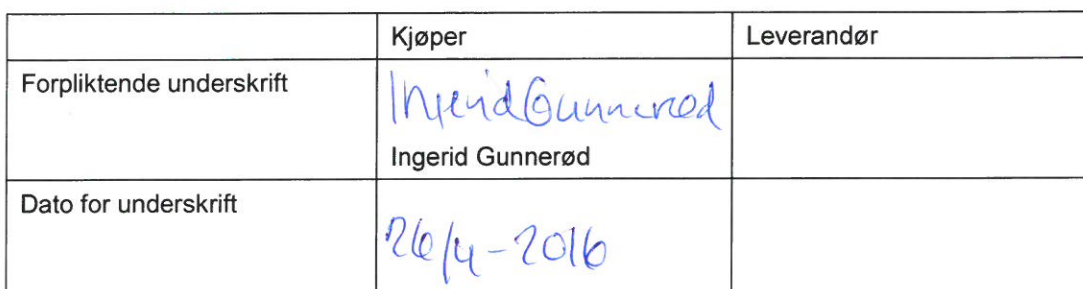 Kjøper Leverandør
Forpliktende underskrift Ingerid Gunnerød
Ingerid Gunnerød
Dato for underskrift 26/4-2016